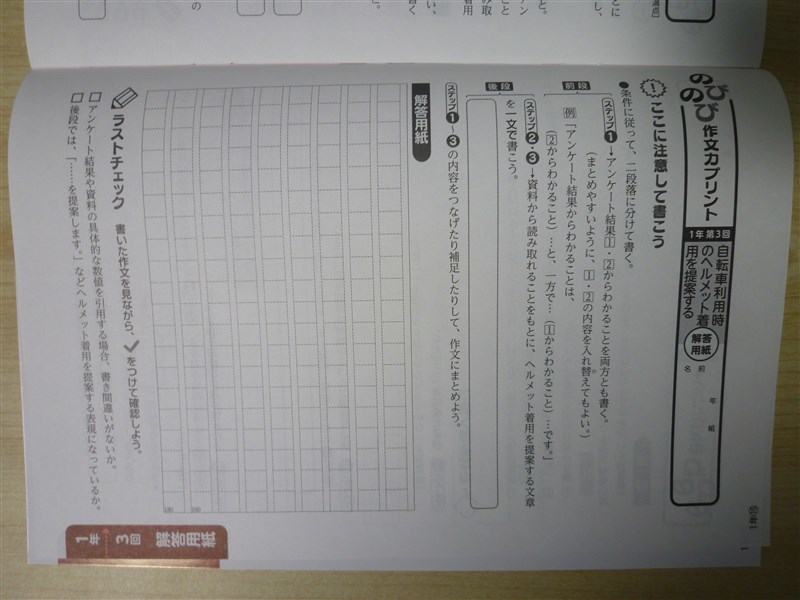 のびのび 作文力プリント
1年 第3回
自転車利用時
のヘルメット着
用を提案する
解答
用紙
名前
年 組
1年⑮
1
ここに注意して書こう
●条件に従って、二段落に分けて書く。
前段
ステップ❶→アンケート結果1・2からわかることを両方とも書く。
(まとめやすいように、1・2の内容を入れ替えてもよい。)
例「アンケート結果からわかることは、
(2からわかること)…と、一方で…(1からわかること)…です。」
後段
ステップ❷・❸→資料から読み取れることをもとに、ヘルメット着用を提案する文章
を一文で書こう。
ステップ❶~❸の内容をつなげたり補足したりして、作文にまとめよう。
解答用紙
ラストチェック 書いた作文を見ながら、✓をつけて確認しよう。
□アンケート結果や資料の具体的な数値を引用する場合、書き間違いがないか。
□後段では、「……を提案します。」などヘルメット着用を提案する表現になっているか。
1年 3回 解答用紙